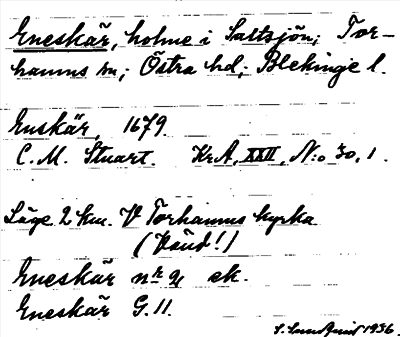 Eneskär, holme i Saltsjön; Tor-
hamns sn; Östra hd; Blekinge l.
Enskär, 1679
C. M. Stuart. KrA, XXII, N:o 30, 1.
Läge 2 km. V Torhamns kyrka
(Vänd!)
Eneskär nr 91 ek.
Eneskär G. 11.
S. Lundquist 1936.